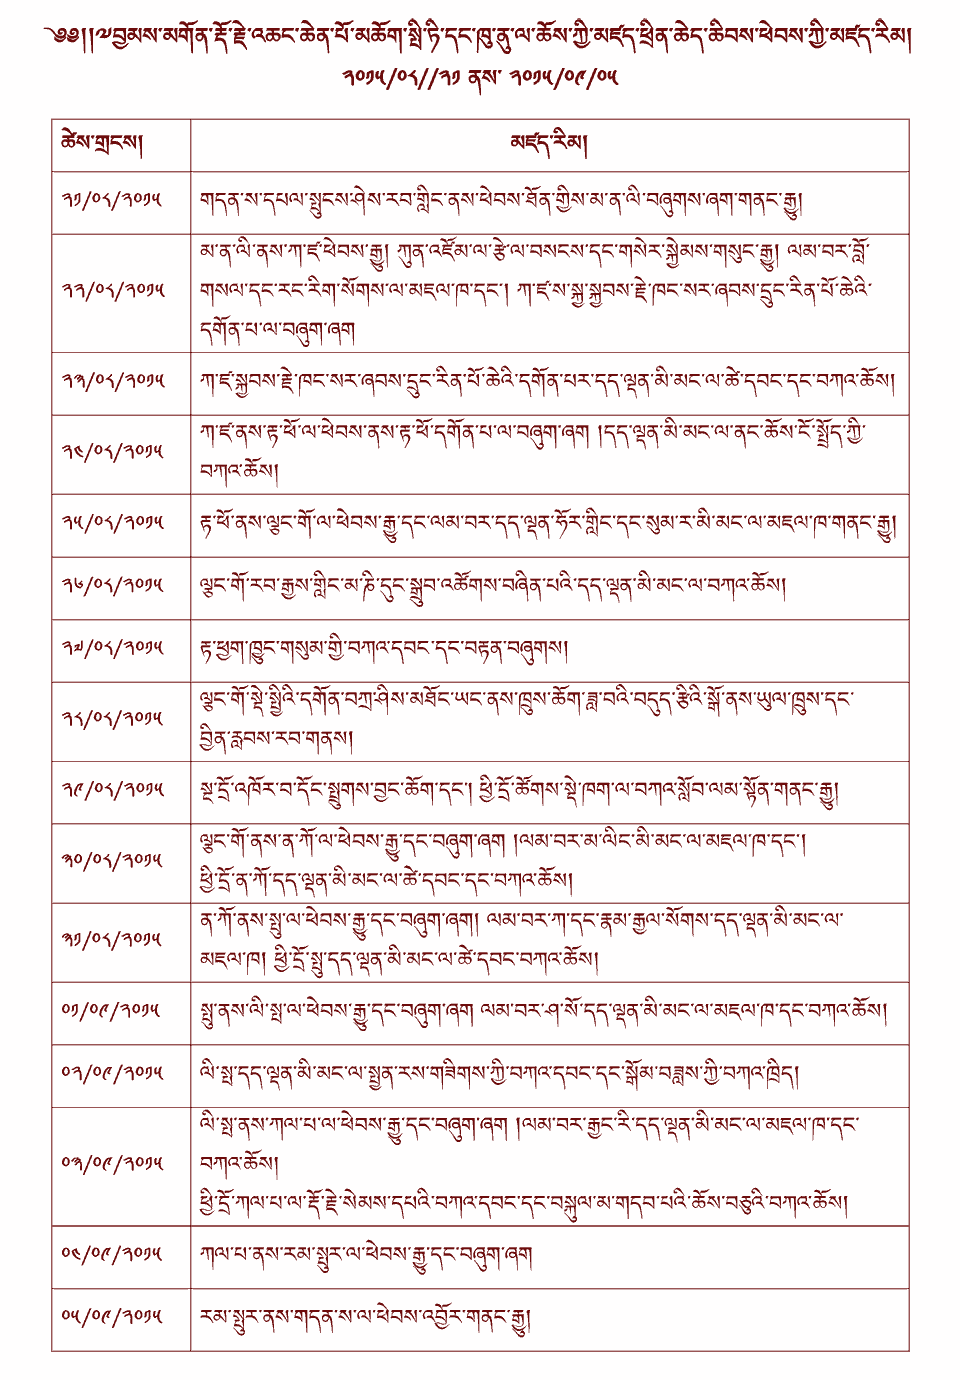 ༄༅། །༧བྱམས་མགོན་རྡོ་རྗེ་འཆང་ཆེན་པོ་མཆོག་སྤི་ཏི་དང་ཁུ་ནུ་ལ་ཆོས་ཀྱི་མཛད་ཕྲིན་ཆེད་ཆིབས་ཕེབས་ཀྱི་མཛད་རིམ།
༢༠༡༥/༠༨//༢༡ ནས་ ༢༠༡༥/༠༩/༠༥
ཚེས་གྲངས།
མཛད་རིམ།
༢༡/༠༨/༢༠༡༥
གདན་ས་དཔལ་སྤུངས་ཤེས་རབ་གླིང་ནས་ཕེབས་ཐོན་གྱིས་མ་ན་ལི་བཞུགས་ཞག་གནང་རྒྱུ།
༢༢/༠༨/༢༠༡༥
མ་ན་ལི་ནས་ཀ་ཛ་ཕེབས་རྒྱུ། ཀུན་འཛོམ་ལ་རྩེ་ལ་བསངས་དང་གསེར་སྐྱེམས་གསུང་རྒྱུ། ལམ་བར་བློ་
གསལ་དང་རང་རིག་སོགས་ལ་མཇལ་ཁ་དང་། ཀ་ཛ་ས་སྐྱ་སྐྱབས་རྗེ་ཁང་སར་ཞབས་དྲུང་རིན་པོ་ཆེའི་
དགོན་པ་ལ་བཞུག་ཞག
༢༣/༠༨/༢༠༡༥
ཀ་ཛ་སྐྱབས་རྗེ་ཁང་སར་ཞབས་དྲུང་རིན་པོ་ཆེའི་དགོན་པར་དད་ལྡན་མི་མང་ལ་ཚེ་དབང་དང་བཀའ་ཆོས།
༢༤/༠༨/༢༠༡༥
ཀ་ཛ་ནས་རྟ་ཕོ་ལ་ཕེབས་ནས་རྟ་ཕོ་དགོན་པ་ལ་བཞུག་ཞག །དད་ལྡན་མི་མང་ལ་ནང་ཆོས་ངོ་སྤྲོད་ཀྱི་
བཀའ་ཆོས།
༢༥/༠༨/༢༠༡༥
རྟ་ཕོ་ནས་ལྕང་གོ་ལ་ཕེབས་རྒྱུ་དང་ལམ་བར་དད་ལྡན་ཧོར་གླིང་དང་སུམ་ར་མི་མང་ལ་མཇལ་ཁ་གནང་རྒྱུ།
༢༦/༠༨/༢༠༡༥
ལྕང་གོ་རབ་རྒྱས་གླིང་མ་ཎི་དུང་སྒྲུབ་འཚོགས་བཞིན་པའི་དད་ལྡན་མི་མང་ལ་བཀའ་ཆོས།
༢༧/༠༨/༢༠༡༥
རྟ་ཕྱག་ཁྱུང་གསུམ་གྱི་བཀའ་དབང་དང་བརྟན་བཞུགས།
༢༨/༠༨/༢༠༡༥
ལྕང་གོ་སྡེ་སྤྱིའི་དགོན་བཀྲ་ཤིས་མཐོང་ཡང་ནས་ཁྲུས་ཆོག་ཟླ་བའི་བདུད་རྩིའི་སྒོ་ནས་ཡུལ་ཁྲུས་དང་
བྱིན་རླབས་རབ་གནས།
༢༩/༠༨/༢༠༡༥
སྔ་དྲོ་འཁོར་བ་དོང་སྤྲུགས་བྱང་ཆོག་དང་། ཕྱི་དྲོ་ཚོགས་སྡེ་ཁག་ལ་བཀའ་སློབ་ལམ་སྟོན་གནང་རྒྱུ།
༣༠/༠༨/༢༠༡༥
ལྕང་གོ་ནས་ན་ཀོ་ལ་ཕེབས་རྒྱུ་དང་བཞུག་ཞག །ལམ་བར་མ་ལིང་མི་མང་ལ་མཇལ་ཁ་དང་།
ཕྱི་དྲོ་ན་ཀོ་དད་ལྡན་མི་མང་ལ་ཚེ་དབང་དང་བཀའ་ཆོས།
༣༡/༠༨/༢༠༡༥
ན་ཀོ་ནས་སྤུ་ལ་ཕེབས་རྒྱུ་དང་བཞུག་ཞག། ལམ་བར་ཀ་དང་རྣམ་རྒྱལ་སོགས་དད་ལྡན་མི་མང་ལ་
མཇལ་ཁ། ཕྱི་དྲོ་སྤུ་དད་ལྡན་མི་མང་ལ་ཚེ་དབང་བཀའ་ཆོས།
༠༡/༠༩/༢༠༡༥
སྤུ་ནས་ལི་སྤ་ལ་ཕེབས་རྒྱུ་དང་བཞུག་ཞག ལམ་བར་ཤ་སོ་དད་ལྡན་མི་མང་ལ་མཇལ་ཁ་དང་བཀའ་ཆོས།
༠༢/༠༩/༢༠༡༥
ལི་སྤ་དད་ལྡན་མི་མང་ལ་སྤྱན་རས་གཟིགས་ཀྱི་བཀའ་དབང་དང་སྒོམ་བཟླས་ཀྱི་བཀའ་ཁྲིད།
༠༣/༠༩/༢༠༡༥
ལི་སྤ་ནས་ཀལ་པ་ལ་ཕེབས་རྒྱུ་དང་བཞུག་ཞག །ལམ་བར་རྒྱང་རི་དད་ལྡན་མི་མང་ལ་མཇལ་ཁ་དང་
བཀའ་ཆོས།
ཕྱི་དྲོ་ཀལ་པ་ལ་རྡོ་རྗེ་སེམས་དཔའི་བཀའ་དབང་དང་བསྐུལ་མ་གདབ་པའི་ཆོས་བཅུའི་བཀའ་ཆོས།
༠༤/༠༩/༢༠༡༥
ཀལ་པ་ནས་རམ་སྤུར་ལ་ཕེབས་རྒྱུ་དང་བཞུག་ཞག
༠༥/༠༩/༢༠༡༥
རམ་སྤུར་ནས་གདན་ས་ལ་ཕེབས་འབྱོར་གནང་རྒྱུ།